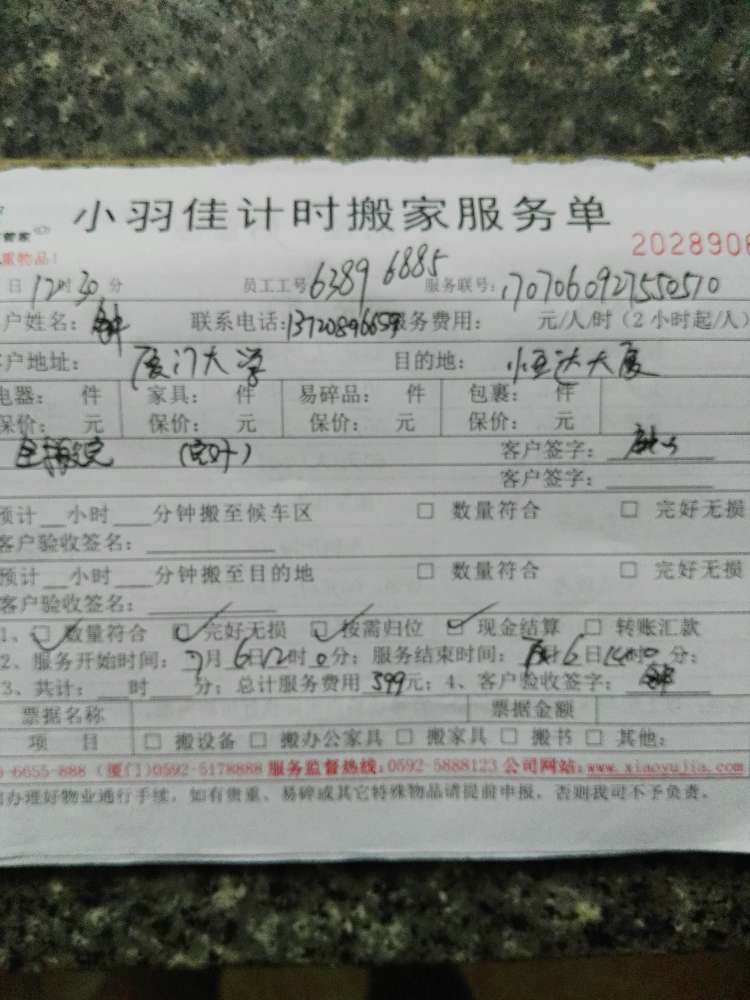 小羽佳计时搬家服务单
管家
重物品！
2028906
日12时30分 员工工号 6389 6885 服务联号：1707060927550510
户姓名： 联系电话：13720896659 服务费用： 元/人/时（2小时起/人）
客户地址： 厦门大学 目的地： 恒达大厦
电器： 件 家具： 件 易碎品： 件 包裹： 件
保价： 元 保价： 元 保价： 元 保价： 元
（完好） 客户签字：
客户签字：
预计__小时___分钟搬至候车区 □ 数量符合 □ 完好无损
客户验收签名：
预计__小时___分钟搬至目的地 □ 数量符合 □ 完好无损
客户验收签名：
1、☑ 数量符合 ☑ 完好无损 ☑ 按需归位 ☑ 现金结算 □ 转账汇款
2、服务开始时间：7月6日12时0分；服务结束时间： 月6日14时0分；
3、共计：___时___分；总计服务费用 399元；4、客户验收签字：
票据名称 票据金额
项 目 □ 搬设备 □ 搬办公家具 □ 搬家具 □ 搬书 □ 其他：
-6655-888（厦门）0592-5178888 服务监督热线：0592-5888123 公司网站：www.xiaoyujia.com
办理好物业通行手续，如有贵重、易碎或其它特殊物品请提前申报，否则我司不予负责。